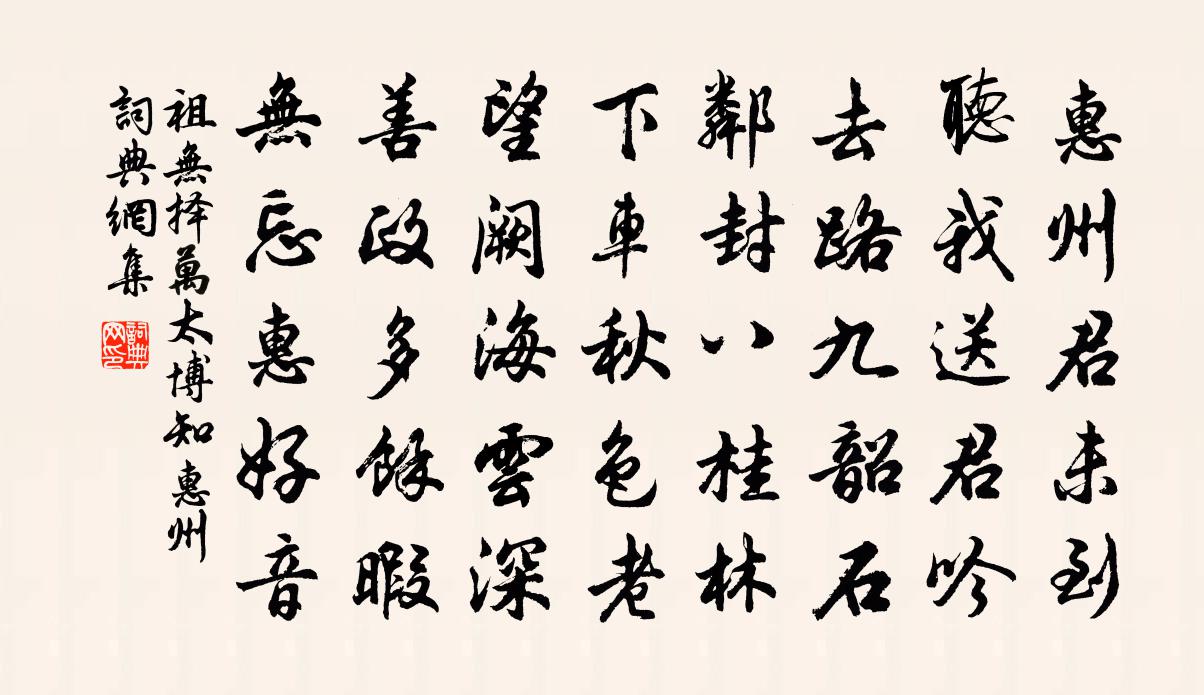 惠州君未到
聽我送君吟
去路九韶石
鄰封八桂林
下車秋色老
望闕海雲深
善政多餘暇
無忘惠好音
祖無择萬太博知惠州
詞典網集
詞典网印